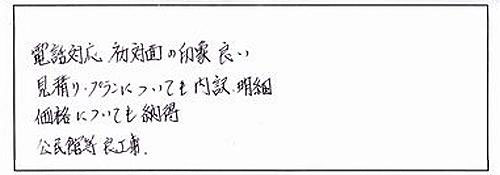 電話対応 初対面の印象良い
見積り・プランについても内訳.明細
価格についても納得
公民館等 良工事.